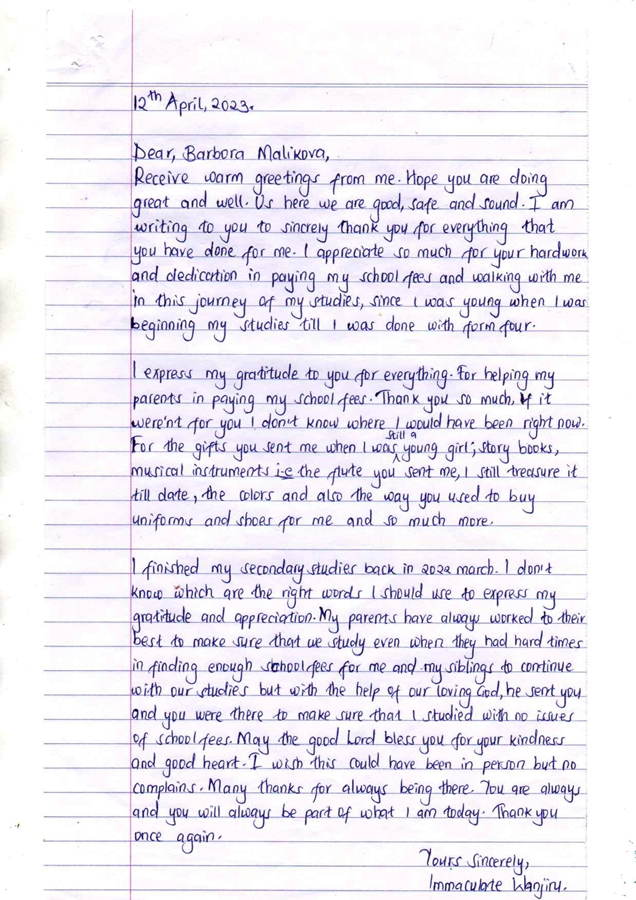 12th April, 2023.
Dear, Barbora Malikova,
Receive warm greetings from me. Hope you are doing
great and well. Us here we are good, safe and sound. I am
writing to you to sincrely thank you for everything that
you have done for me. I appreciate so much for your hardwork
and dedication in paying my school fees and walking with me
in this journey of my studies, since I was young when I was
beginning my studies till I was done with form four.
I express my gratitude to you for everything. For helping my
parents in paying my school fees. Thank you so much, if it
were'nt for you I don't know where I would have been right now.
For the gifts you sent me when I was still a young girl; story books,
musical instruments i.e the flute you sent me, I still treasure it
till date, the colors and also the way you used to buy
uniforms and shoes for me and so much more.
I finished my secondary studies back in 2022 march. I don't
know which are the right words I should use to express my
gratitude and appreciation. My parents have always worked to their
best to make sure that we study even when they had hard times
in finding enough school fees for me and my siblings to continue
with our studies but with the help of our loving God, he sent you
and you were there to make sure that I studied with no issues
of school fees. May the good Lord bless you for your kindness
and good heart. I wish this could have been in person but no
complains. Many thanks for always being there. You are always
and you will always be part of what I am today. Thank you
once again.
Yours Sincerely,
Immaculate Wanjiru.